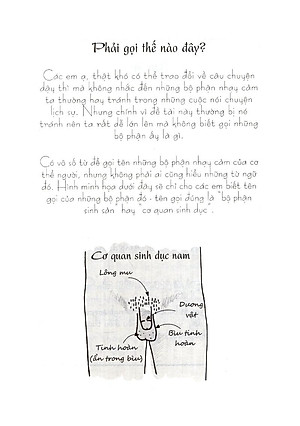 Phải gọi thế nào đây?
Các em ạ, thật khó có thể trao đổi về câu chuyện
dậy thì mà không nhắc đến những bộ phận nhạy cảm
ta thường hay tránh trong những cuộc nói chuyện
lịch sự. Nhưng chính vì đề tài này thường bị né
tránh nên ta rất dễ lẫn lộn mà không biết gọi những
bộ phận ấy là gì.
Có vô số từ để gọi tên những bộ phận nhạy cảm của cơ
thể người, nhưng không phải ai cũng hiểu những từ ngữ
đó. Hình minh họa dưới đây sẽ chỉ cho các em biết tên
gọi của những bộ phận đó - tên gọi đúng là "bộ phận
sinh sản" hay "cơ quan sinh dục".
Cơ quan sinh dục nam
Lông mu
Dương
vật
Bìu tinh
hoàn
Tinh hoàn
(ẩn trong bìu)